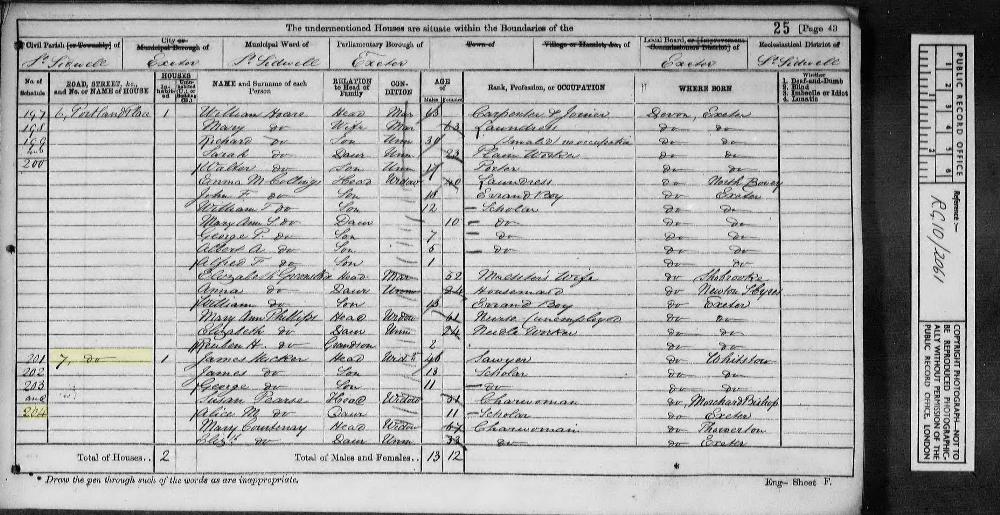 The undermentioned Houses are situate within the Boundaries of the
25 [Page 43
Civil Parish [or Township] of
City or Municipal Borough of
Municipal Ward of
Parliamentary Borough of
Town of
Village or Hamlet, &c., of
Local Board, or [Improvement Commissioners District] of
Ecclesiastical District of
St Sidwell Exeter St Sidwell Exeter Exeter St Sidwell
No. of Schedule
ROAD, STREET, &c., and No. or NAME of HOUSE
HOUSES
NAME and Surname of each Person
RELATION to Head of Family
CONDITION
AGE
Males Females
Rank, Profession, or OCCUPATION
WHERE BORN
Whether
1. Deaf-and-Dumb
2. Blind
3. Imbecile or Idiot
4. Lunatic
197 6, Portland Place 1 William Head Mar 63 Carpenter & Joiner Devon, Exeter
198 Mary do Wife Mar 63 Laundress do do
199 Richard do Son Unm 30 no occupation do do
Sarah do Daur Unm 23 Plain Worker do do
200 Walter do Son Unm 17 Porter do do
Emma Head Widow 40 Laundress do North Bovey
John F. do Son 14 Errand Boy do Exeter
William T. do Son 12 Scholar do do
Mary Ann S. do Daur 10 do do do
George P. do Son 7 do do do
Albert A. do Son 5 do do do
Alfred T. do Son 1 do do
Elizabeth Head Mar 52 Wife do
Anna do Daur Unm 24 Housemaid do Newton St Cyres
William do Son 13 Errand Boy do Exeter
Mary Ann Phillips Head Widow 61 Nurse (unemployed do do
Elizabeth do Daur Unm 24 Needle Worker do do
Reuben H. do Grandson 2 do do
201 7, do 1 James Head Widr 46 Sawyer do Whitstow
202 James do Son 13 Scholar do do
203 George do Son 11 do do do
and Susan Pearse Head Widow 51 Charwoman do Morchard Bishop
204 Alice M. do Daur 11 Scholar do Exeter
Mary Courtenay Head Widow 67 Charwoman do Thorverton
Elizth do Daur Unm 33 do do Exeter
Total of Houses.. 2
Total of Males and Females.. 13 12
* Draw the pen through such of the words as are inappropriate.
Eng— Sheet F.
PUBLIC RECORD OFFICE
1 2 3 4 5 6
Reference :—
R.G. 10/2061
COPYRIGHT PHOTOGRAPH—NOT TO BE REPRODUCED PHOTOGRAPHICALLY WITHOUT PERMISSION OF THE PUBLIC RECORD OFFICE, LONDON